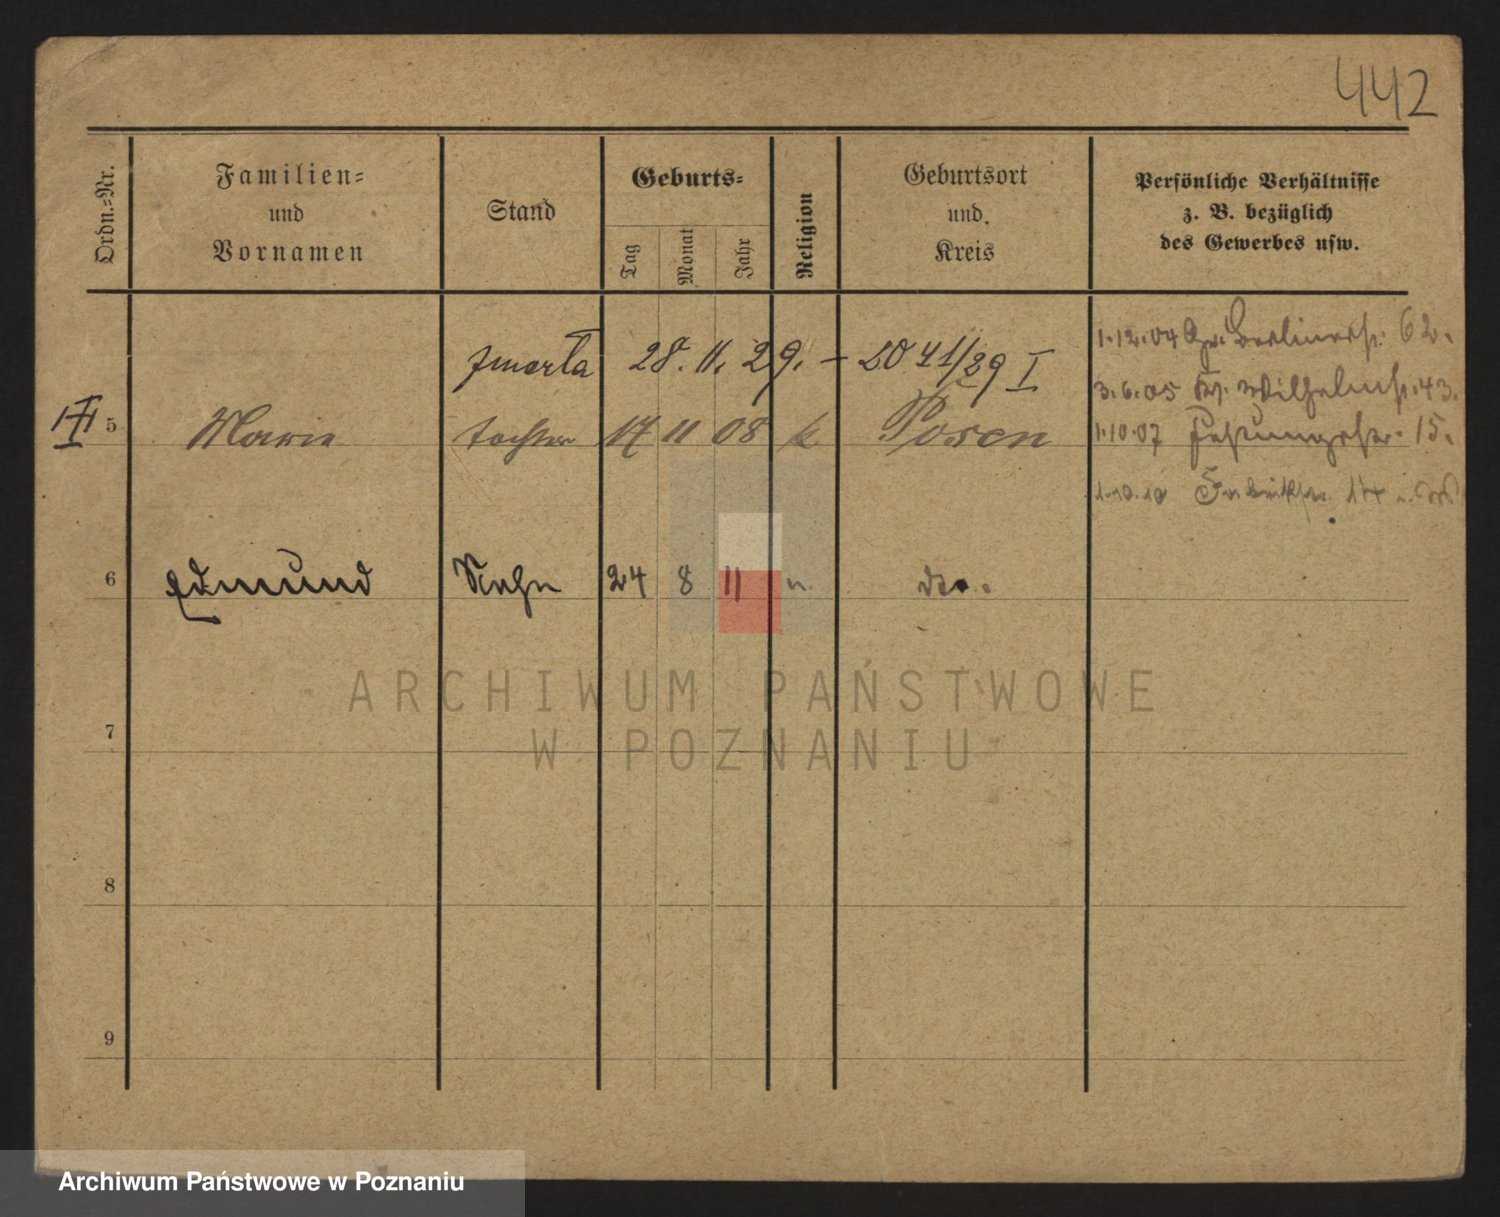 442
Ordn.=Nr.
Familien=
und
Vornamen
Stand
Geburts=
Tag
Monat
Jahr
Religion
Geburtsort
und
Kreis
Persönliche Verhältnisse
z. B. bezüglich
des Gewerbes usw.
zmarła 28. 11. 29. - 2041/29 I
5 Marie tochter 17 11 08 k Posen
1.12.04 Gr. Berlinerstr. 62.
3.6.05 Wilhelmstr. 43.
1.10.07 Festungsstr. 15.
1.10.10
6 Edmund Sohn 24 8 11 do.
7
8
9
ARCHIWUM PAŃSTWOWE
W POZNANIU
Archiwum Państwowe w Poznaniu